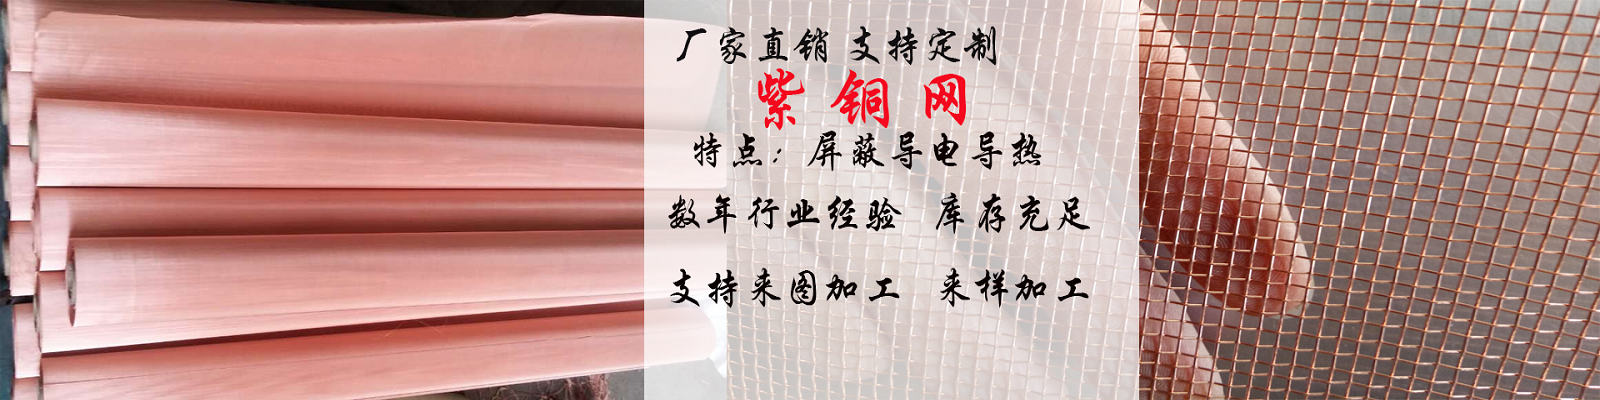 厂家直销 支持定制
紫铜网
特点：屏蔽导电导热
数年行业经验 库存充足
支持来图加工 来样加工